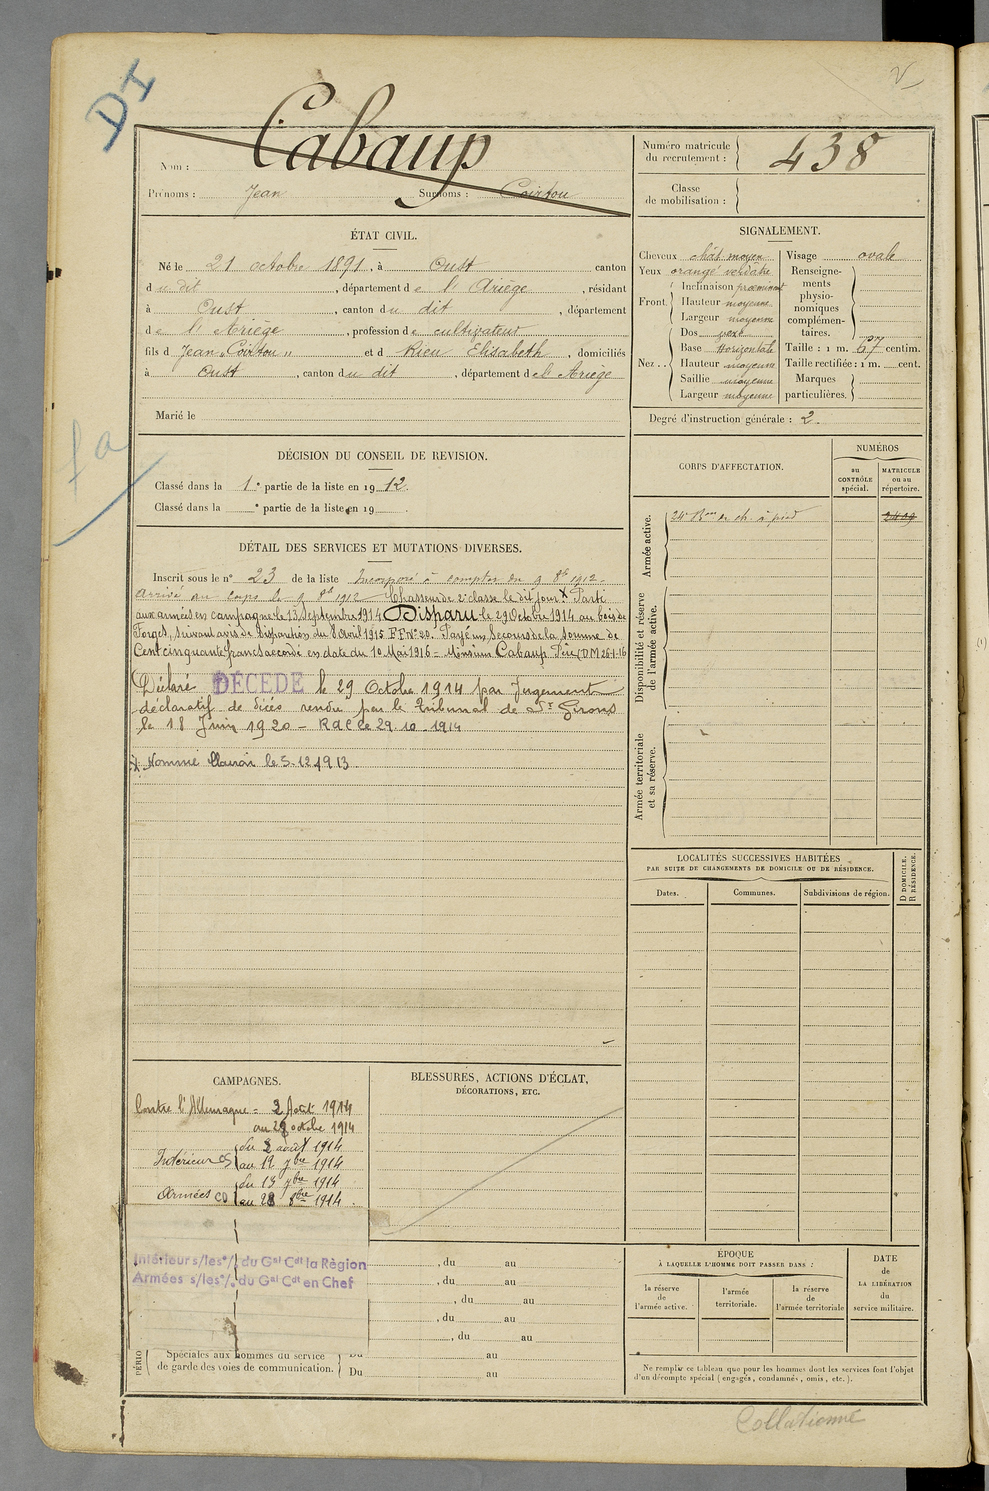 DI
V
Cabaup
Nom :
Prénoms : Jean Surnoms : Coirtou
Numéro matricule
du recrutement : 438
Classe
de mobilisation :
ÉTAT CIVIL.
Né le 21 octobre 1891, à Oust canton
du dit, département de l'Ariège, résidant
à Oust, canton du dit, département
de l'Ariège, profession de cultivateur
fils d Jean "Coirtou" et d Rieu Elisabeth, domiciliés
à Oust, canton du dit, département de l'Ariège
Marié le
SIGNALEMENT.
Cheveux chât moyen
Yeux orangé verdâtre
Front : Inclinaison proéminent
Hauteur moyenne
Largeur moyenne
Nez : Dos vexe
Base Horizontale
Hauteur moyenne
Saillie moyenne
Largeur moyenne
Visage ovale
Renseigne-
ments
physio-
nomiques
complémen-
taires.
Taille : 1 m. 67 centim.
Taille rectifiée : 1 m. cent.
Marques
particulières.
Degré d'instruction générale : 2.
fa
DÉCISION DU CONSEIL DE REVISION.
Classé dans la 1e partie de la liste en 1912.
Classé dans la e partie de la liste en 19 .
DÉTAIL DES SERVICES ET MUTATIONS DIVERSES.
Inscrit sous le n° 23 de la liste Incorporé à compter du 9 8bre 1912.
Arrivé au corps le 9 8bre 1912 Chasseur de 2e classe le dit jour X Parti
aux armées en campagne le 13 septembre 1914 Disparu le 29 Octobre 1914 au bois de
Forges, suivant avis de disparition du 8 avril 1915 FF N° 20. Payé un secours de la somme de
Cent cinquante francs accordé en date du 10 Mai 1916 - Monsieur Cabaup Père (DM 26-1-16
Déclaré DÉCÉDÉ le 29 Octobre 1914 par Jugement
déclaratif de décès rendu par le Tribunal de St Girons
le 18 Juin 1920 - R d C le 29.10.1914
X Nommé Clairon le 5-12 1913
CORPS D'AFFECTATION.
NUMÉROS
au
CONTRÔLE
spécial.
MATRICULE
ou au
répertoire.
Armée active.
24e Bon de ch. à pied
Disponibilité et réserve
de l'armée active.
Armée territoriale
et sa réserve.
LOCALITÉS SUCCESSIVES HABITÉES
PAR SUITE DE CHANGEMENTS DE DOMICILE OU DE RÉSIDENCE.
Dates.
Communes.
Subdivisions de région.
D DOMICILE.
R RÉSIDENCE.
CAMPAGNES.
Contre l'Allemagne = 2 Août 1914
au 28 octobre 1914
Intérieur CS du 2 août 1914
au 12 7bre 1914
Armées CD du 13 7bre 1914
au 28 8bre 1914
Intérieur s/les °/. du Gal Cdt la Règion
Armées s/les °/. du Gal Cdt en Chef
PÉRIO
Spéciales aux hommes du service
de garde des voies de communication.
BLESSURES, ACTIONS D'ÉCLAT,
DÉCORATIONS, ETC.
, du au
, du au
, du au
, du au
, du au
Du au
Du au
ÉPOQUE
À LAQUELLE L'HOMME DOIT PASSER DANS :
la réserve
de
l'armée active.
l'armée
territoriale.
la réserve
de
l'armée territoriale
DATE
de
LA LIBÉRATION
du
service militaire.
Ne remplir ce tableau que pour les hommes dont les services font l'objet
d'un décompte spécial (engagés, condamnés, omis, etc.).
Collationné